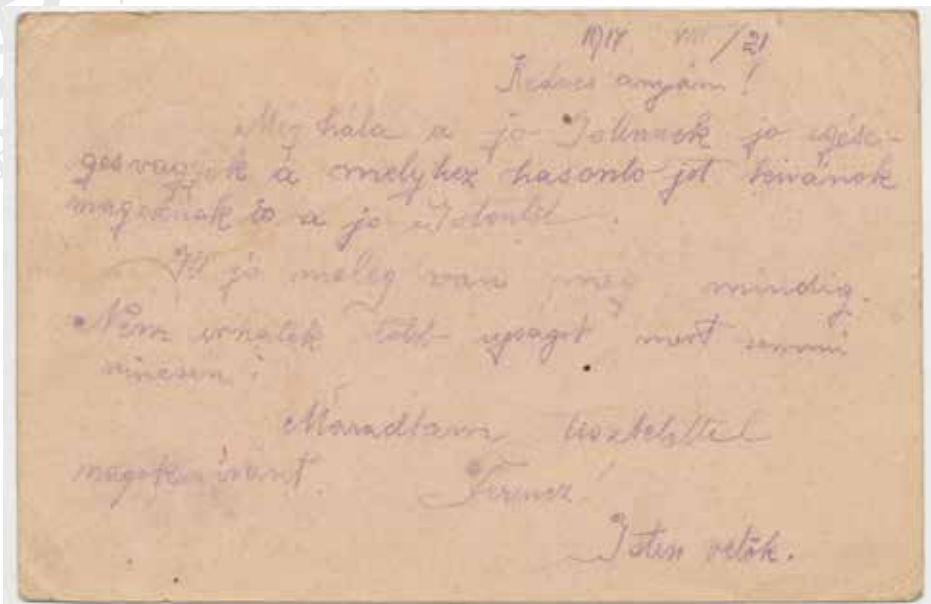 1917 VIII/21
Kedves anyám!
Még hála a jo Istennek jo egésé-
gesvagyok a melyhez hasonlo jot kivánok
magoknak is a jo Istentöl.
Itt jó meleg van még mindig.
Nem irhatok több ujságot mert semmi
nincsen!
Maradtam tisztelettel
magok iránt. Ferencz!
Isten velök.